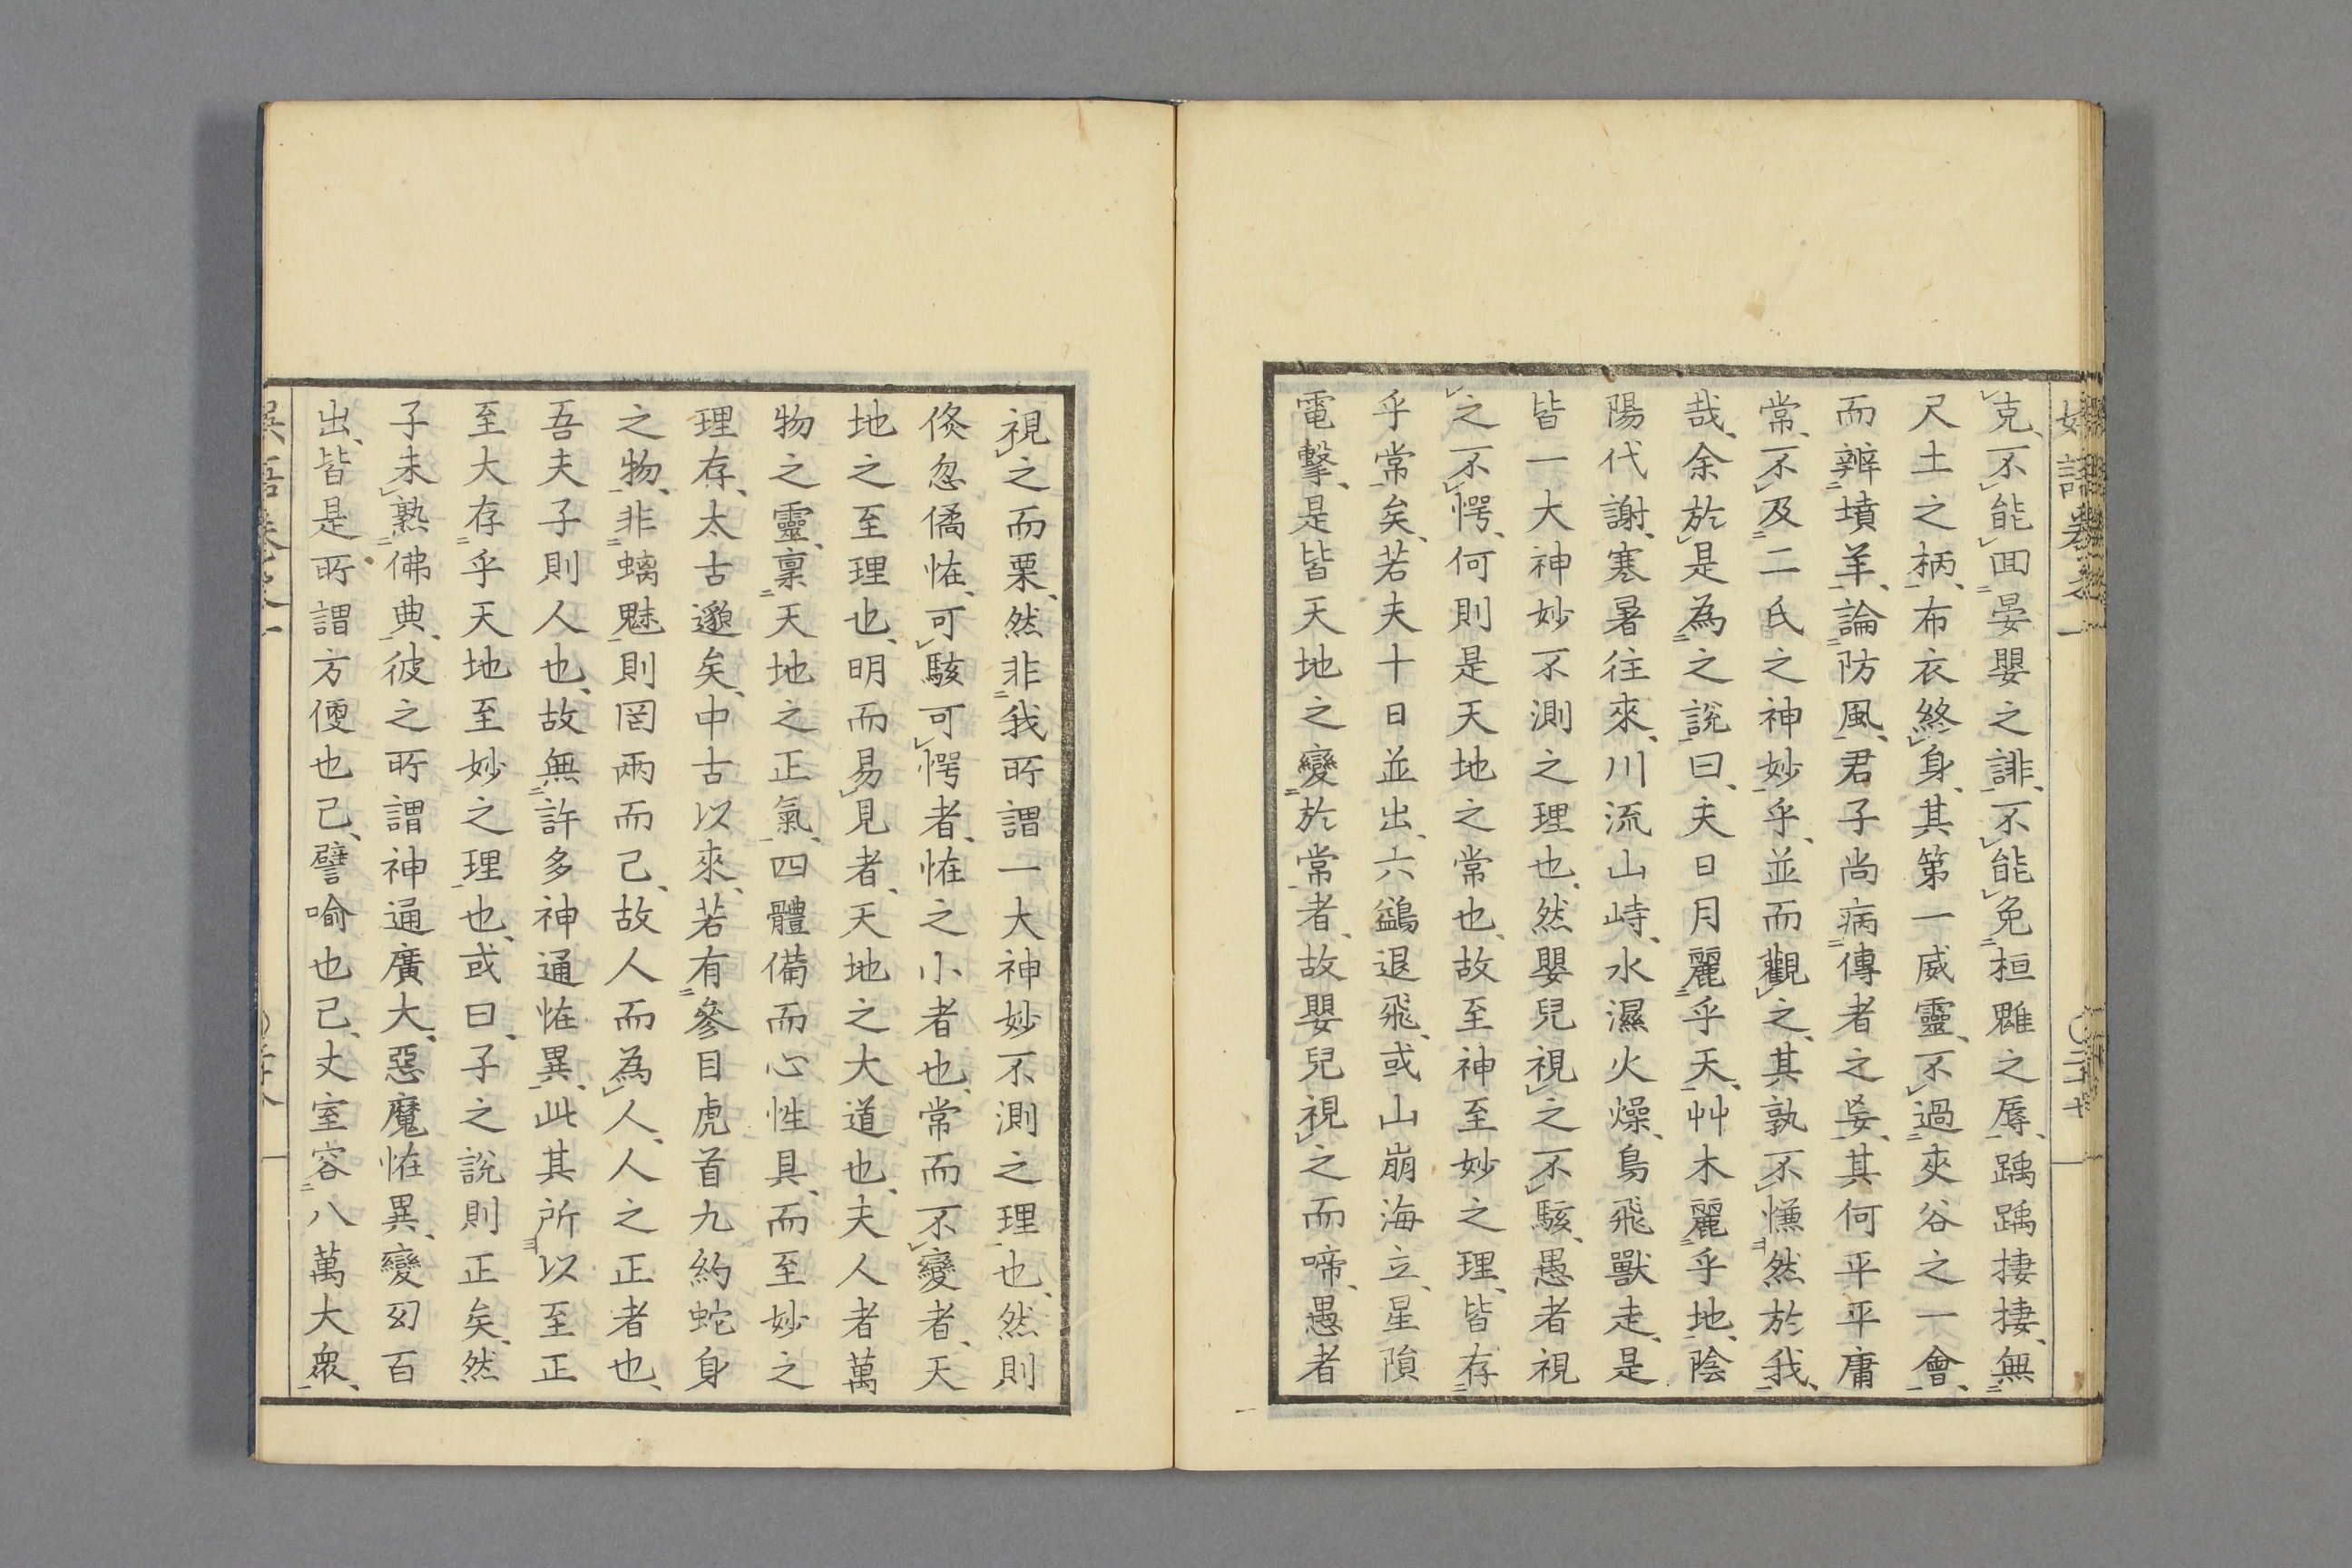 克、不能回晏嬰之誹、不能免桓魋之辱、踽踽捿捿、無
尺土之柄、布衣終身、其第一威靈、不過夾谷之一會、
而辨墳羊、論防風、君子尚病傳者之妄、其何平平庸
常、不及二氏之神妙乎、並而觀之、其孰不慊然於我
哉、余於是為之說曰、夫日月麗乎天、艸木麗乎地、陰
陽代謝、寒暑往來、川流山峙、水濕火燥、鳥飛獸走、是
皆一大神妙不測之理也、然嬰兒視之不駭、愚者視
之不愕、何則是天地之常也、故至神至妙之理、皆存
乎常矣、若夫十日並出、六鷁退飛、或山崩海立、星隕
電擊、是皆天地之變於常者、故嬰兒視之而啼、愚者
視之而栗、然非我所謂一大神妙不測之理也、然則
倏忽僪恠、可駭可愕者、恠之小者也、常而不變者、天
地之至理也、明而易見者、天地之大道也、夫人者萬
物之靈、稟天地之正氣、四體備而心性具、而至妙之
理存、太古邈矣、中古以來、若有參目虎首九約蛇身
之物、非螭魅則罔兩而已、故人而為人、人之正者也、
吾夫子則人也、故無許多神通恠異、此其所以至正
至大存乎天地至妙之理也、或曰、子之說則正矣、然
子未熟佛典、彼之所謂神通廣大、惡魔恠異、變幻百
出、皆是所謂方便也已、譬喻也已、丈室容八萬大衆、